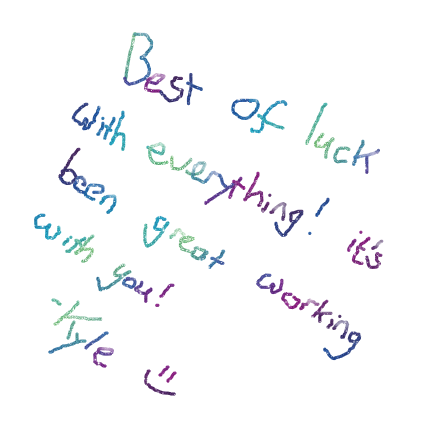 Best of luck
with everything! it's
been great working
with you!
Kyle :)